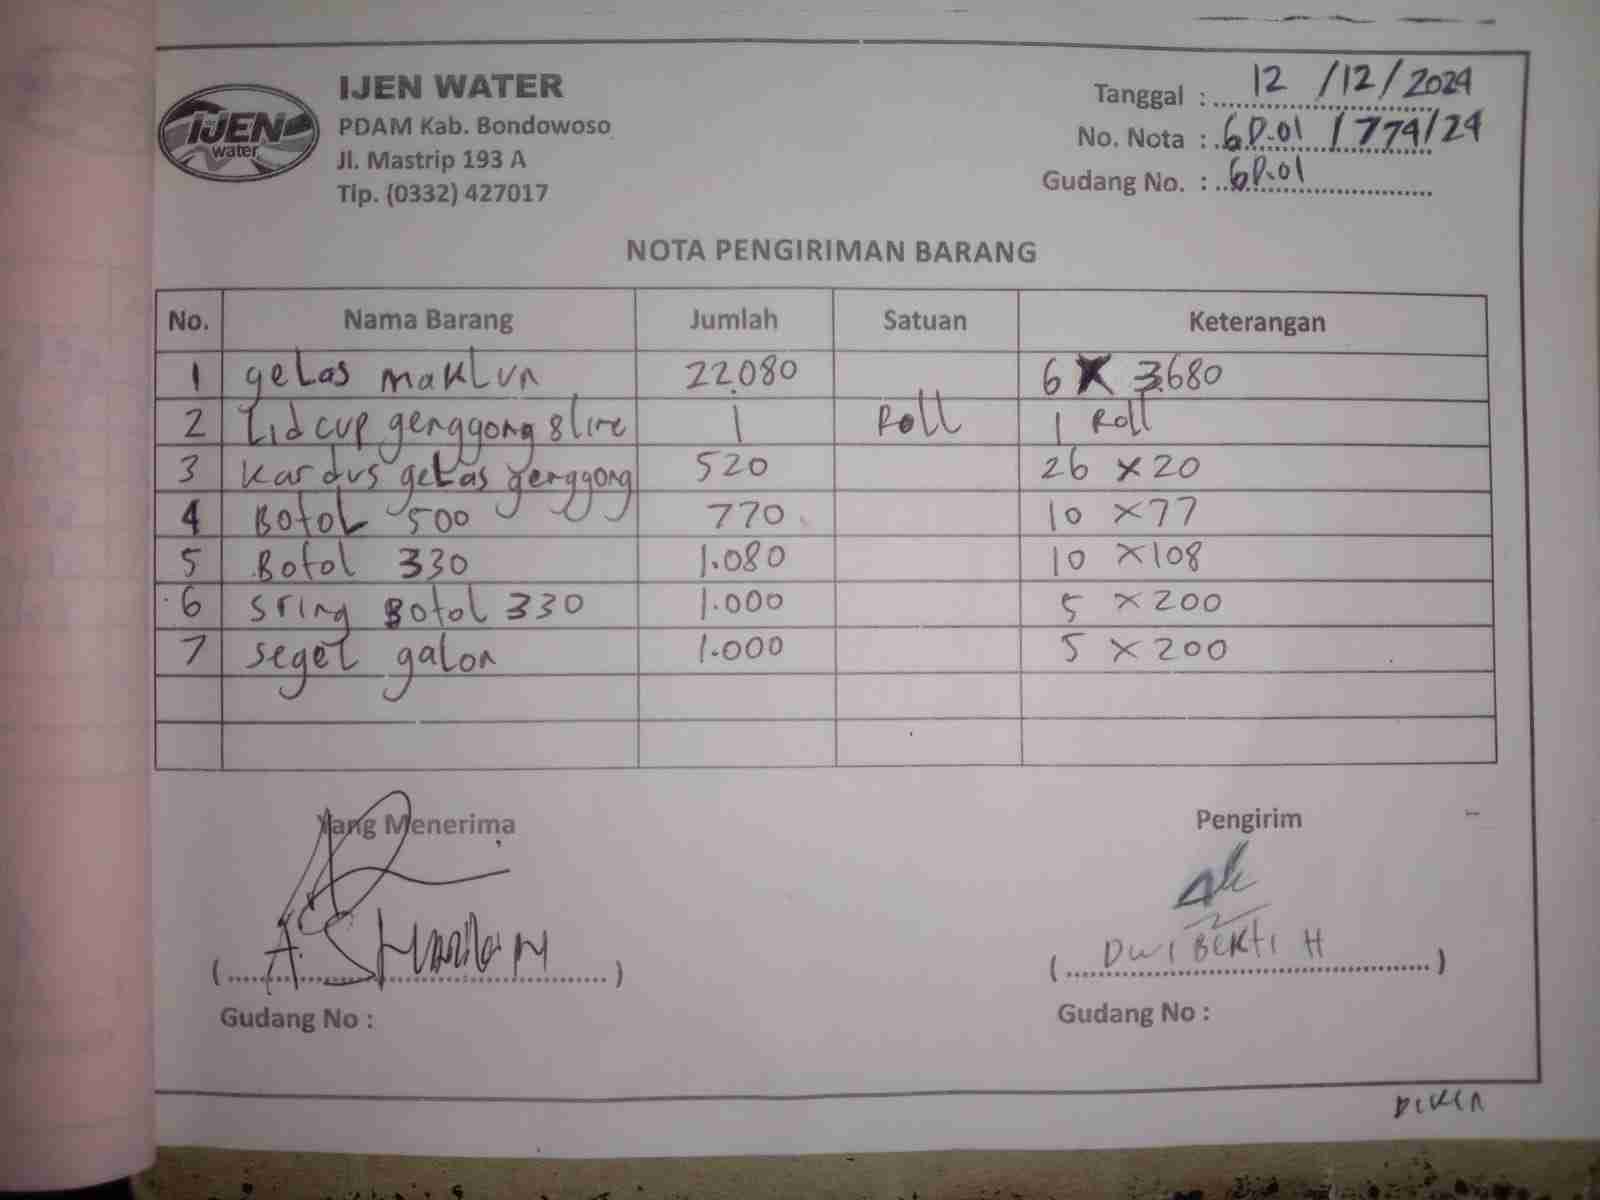 IJEN WATER
IJEN
water
PDAM Kab. Bondowoso
Jl. Mastrip 193 A
Tlp. (0332) 427017
Tanggal : 12 /12/2024
No. Nota : 6D.01 /774/24
Gudang No. : 6D.01
NOTA PENGIRIMAN BARANG
No. Nama Barang Jumlah Satuan Keterangan
1 gelas maklun 22.080 6 X 3.680
2 Lid cup genggong 8 line 1 Roll 1 Roll
3 Kardus gelas genggong 520 26 x 20
4 Botol 500 770 10 x 77
5 Botol 330 1.080 10 x 108
6 Sring Botol 330 1.000 5 x 200
7 Segel galon 1.000 5 x 200
Yang Menerima Pengirim
(A.) (DWI BEKTI H)
Gudang No : Gudang No :